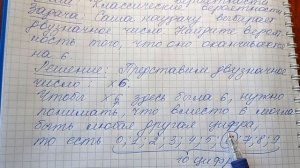 Классическое
Задача. Саша наудачу выбирает
двузначное число. Найдите вероят-
ность того, что оно оканчивается
на 6
Решение: Представим двузначное
число: x6.
Чтобы x здесь была 6, нужно
понимать, что вместо x может
быть любая другая цифра,
то есть 0,1,2,3,4,5,6,7,8,9
10 цифр